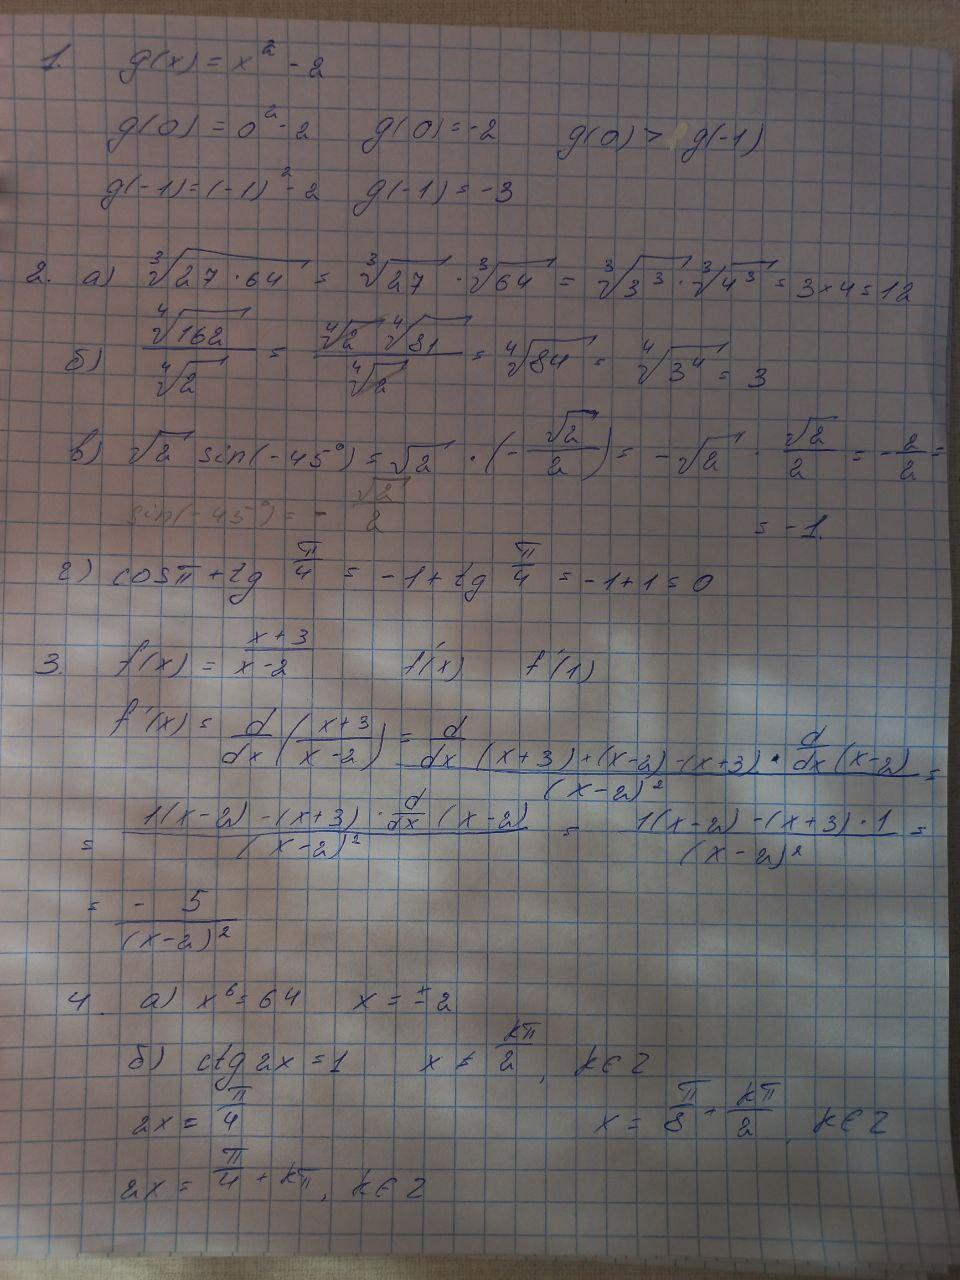 1. g(x) = x² - 2
g(0) = 0² - 2 g(0) = -2 g(0) > g(-1)
g(-1) = (-1)² - 2 g(-1) = -3
2. а) ∛(27·64) = ∛27 · ∛64 = ∛3³ · ∛4³ = 3×4 = 12
б) ∜162 / ∜2 = ∜2 ∜81 / ∜2 = ∜84 = ∜3⁴ = 3
в) √2 sin(-45°) = √2 · (-√2/2) = -√2 · √2/2 = -2/2 =
sin(-45°) = -√2/2 = -1.
г) cosπ + tg π/4 = -1 + tg π/4 = -1+1 = 0
3. f(x) = (x+3)/(x-2) f'(x) f'(1)
f'(x) = d/dx ((x+3)/(x-2)) = (d/dx (x+3)+(x-2)-(x+3) · d/dx (x-2))/(x-2)² =
= (1(x-2) - (x+3) · d/dx (x-2))/(x-2)² = (1(x-2) - (x+3)·1)/(x-2)² =
= -5/(x-2)²
4. а) x⁶ = 64 x = ±2
б) ctg 2x = 1 x ≠ kπ/2, k∈Z
2x = π/4 x = π/8 + kπ/2, k∈Z
2x = π/4 + kπ, k∈Z